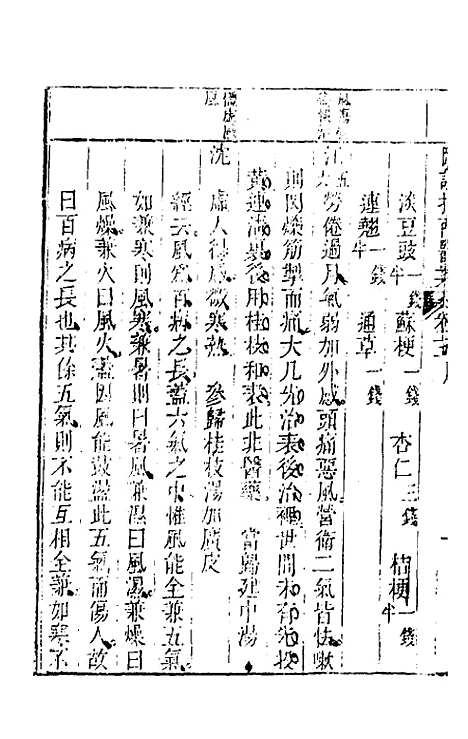 淡豆豉一錢半 蘇梗一錢 杏仁三錢 桔梗一錢半
連翹一錢半 通草一錢
江五九 勞倦過月氣弱加外感頭痛惡風營衛二氣皆怯嗽
則閃爍筋掣而痛大凡先治表後治裡世間未有先投
黃連清裏後用桂枝和表此非醫藥 當歸建中湯
沈 虛人得感微寒熱 參歸桂枝湯加廣皮
經云風爲百病之長蓋六氣之中惟風能全兼五氣
如兼寒則風寒兼暑則曰暑風兼濕曰風濕兼燥曰
風燥兼火曰風火蓋因風能鼓蕩此五氣而傷人故
曰百病之長也其餘五氣則不能互相全兼如寒不